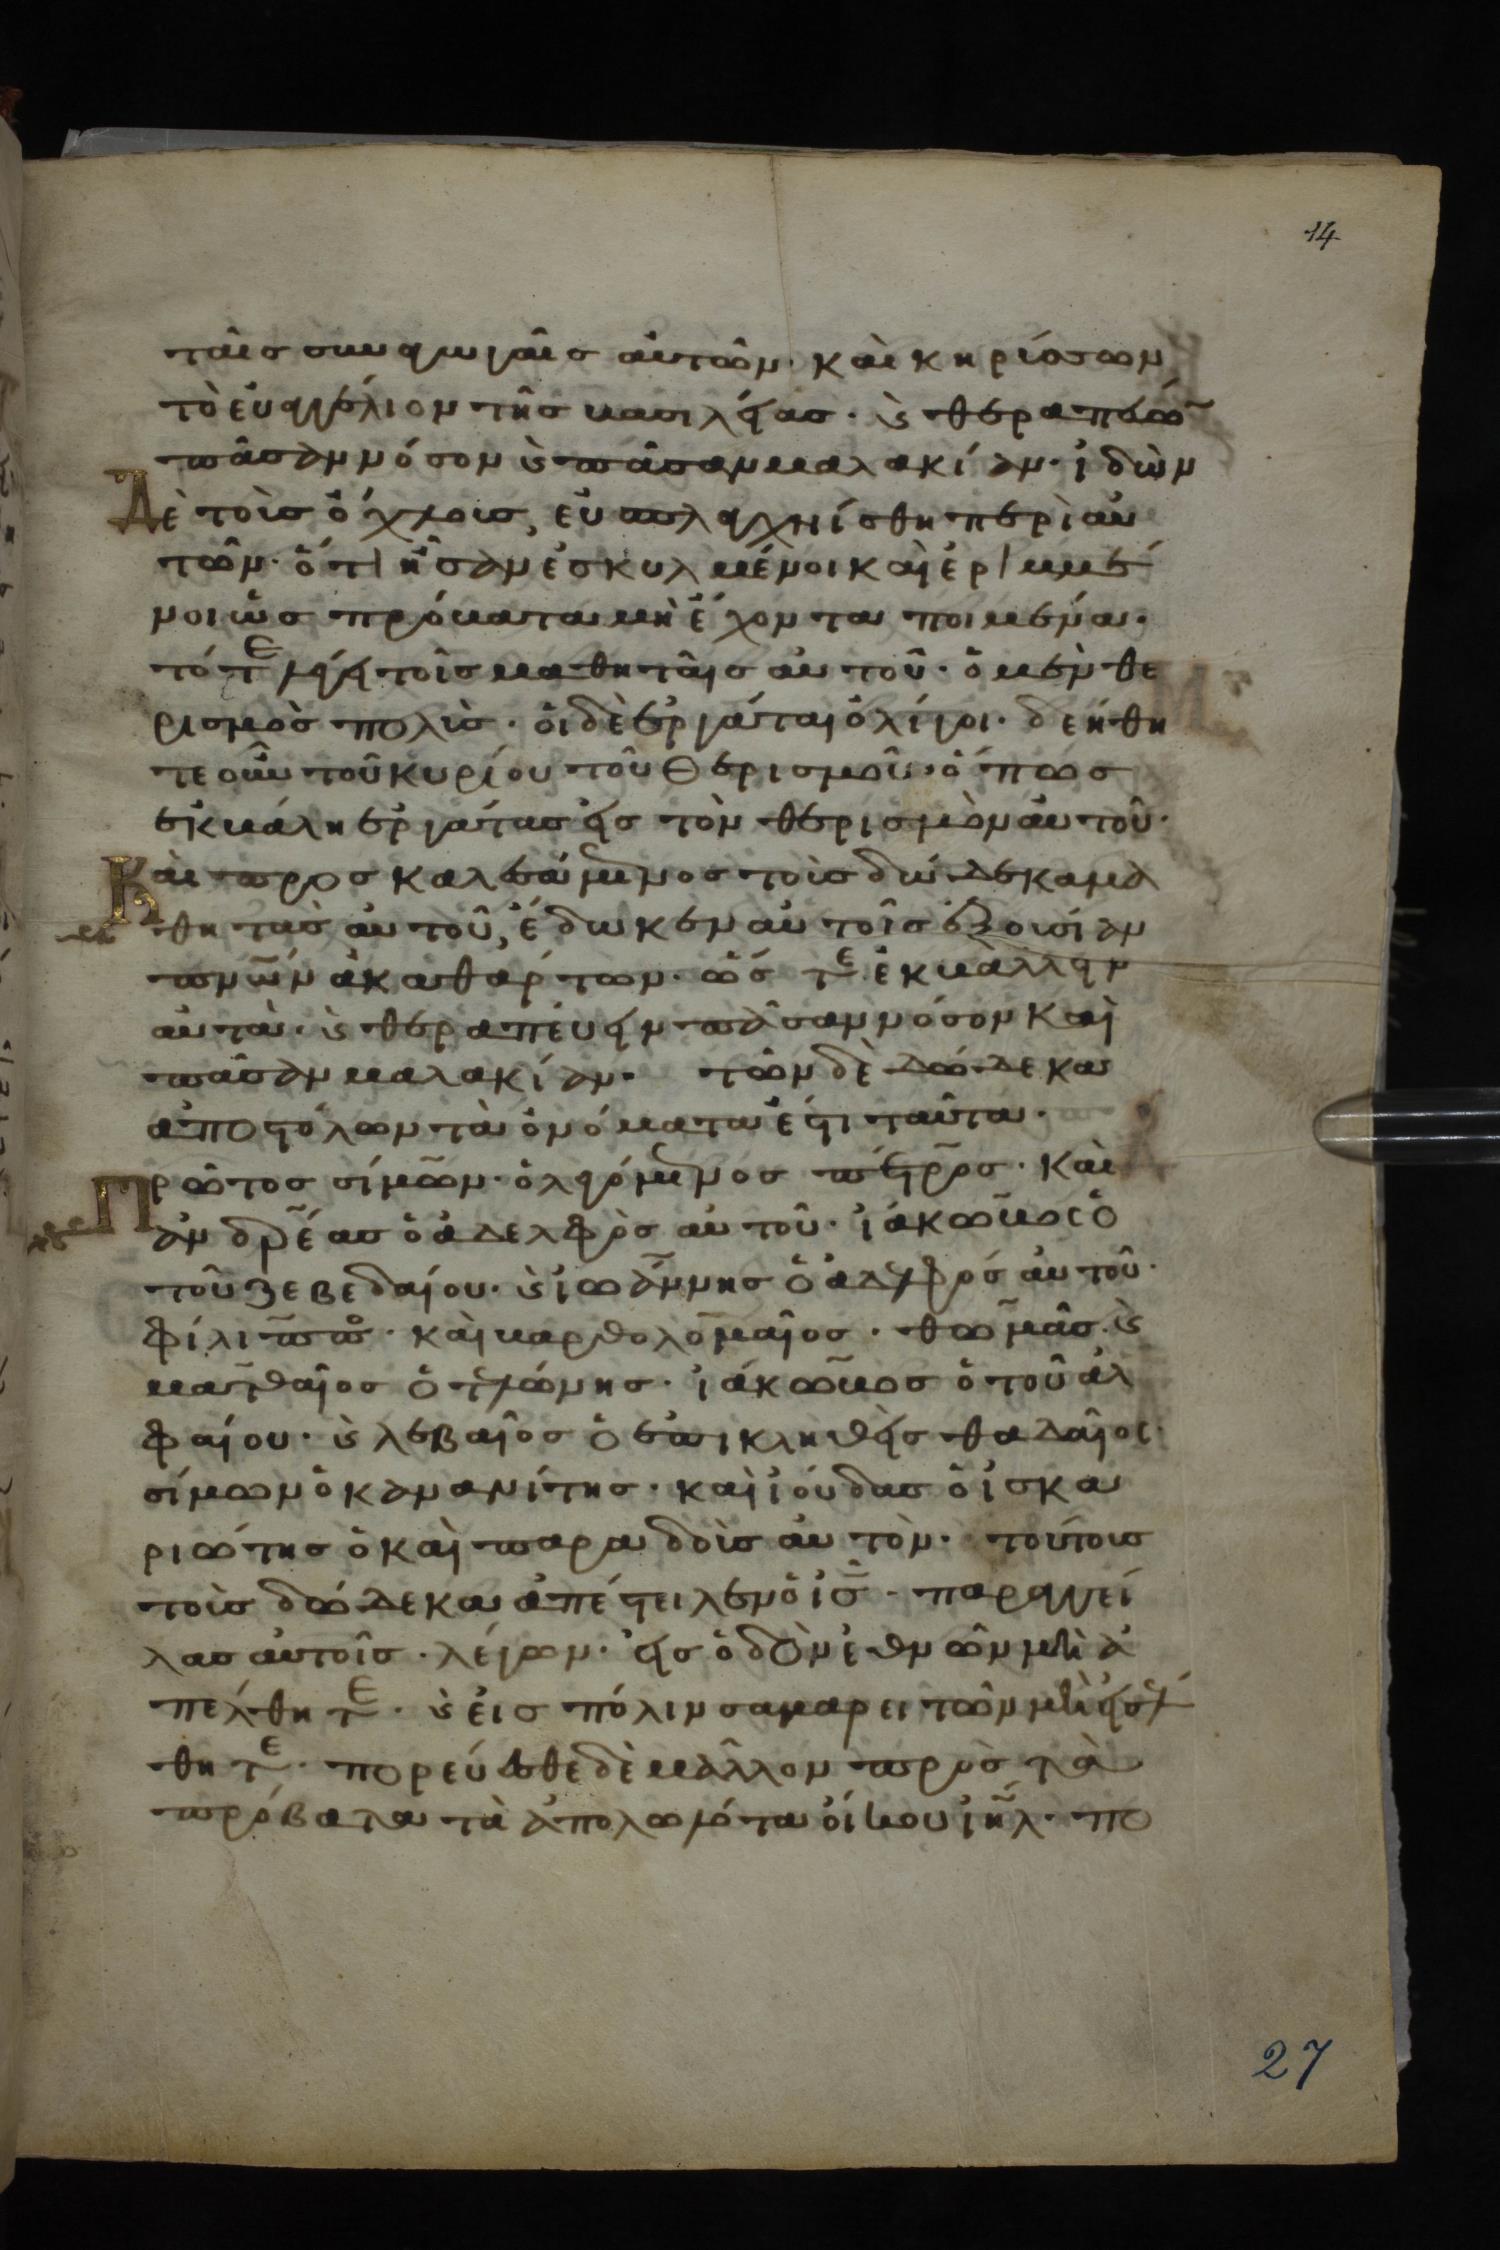 14
ταῖς συναγωγαῖς αὐτῶν· καὶ κηρίσσων
τὸ εὐαγγέλιον τῆς βασιλείας· ϗ θεραπεύω̃
πᾶσαν νόσον ϗ πᾶσαν μαλακίαν· ἰδὼν
Δὲ τοὺς ὄχλους, εὐσπλαγχνίσθη περὶ αὐ
τῶν· ὅτι ἦσαν ἐσκυλμένοι καὶ ἐριμμέ
νοι ὡς πρόβατα μὴ ἔχοντα ποιμένα·
τότε λέγει τοῖς μαθηταῖς αὐτοῦ· ὁ μὲν θε
ρισμὸς πολὺς· οἱ δὲ ἐργάται ὀλίγοι· δεήθη
τε οὖν τοῦ κυρίου τοῦ θερισμοῦ· ὅπως
ἐκβάλη ἐργάτας εἰς τὸν θερισμὸν αὐτοῦ·
Καὶ προσκαλεσάμενος τοὺς δώδεκα μα
θητὰς αὐτοῦ, ἔδωκεν αὐτοῖς ἐξουσίαν
πνῶν ἀκαθάρτων· ὥστε ἐκβάλλειν
αὐτὰ· ϗ θεραπεύειν πᾶσαν νόσον καὶ
πᾶσαν μαλακίαν· τῶν δὲ δώδεκα
ἀποστόλων τὰ ὀνόματα ἐστι ταῦτα·
Πρῶτος σίμων· ὁ λεγόμενος πέτρος· καὶ
ἀνδρέας ὁ ἀδελφὸς αὐτοῦ· ἰάκωβος ὁ
τοῦ ζεβεδαίου· ϗ ἰωάννης ὁ ἀδελφός αὐτοῦ·
φίλιππος· καὶ βαρθολομαῖος· θωμᾶς· ϗ
ματθαῖος ὁ τελώνης· ἰάκωβος ὁ τοῦ ἀλ
φαίου· ϗ λεβαῖος ὁ ἐπικληθεὶς θαδαῖος·
σίμων ὁ κανανίτης· καὶ ἰούδας ὁ ἰσκα
ριώτης ὁ καὶ παραδοὺς αὐτὸν· τούτους
τοὺς δώδεκα ἀπέστειλεν ὁ ἰς̄· παραγγεί
λας αὐτοῖς· λέγων· εἰς ὁδὸν ἐθνῶν μὴ ἀ
πέλθητε· ϗ εἰς πόλιν σαμαρειτῶν μὴ εἰσέλ
θητε· πορεύεσθε δὲ μᾶλλον πρὸς τὰ
πρόβατα τὰ ἀπολωλότα οἴκου ἰη̄λ· πο
27